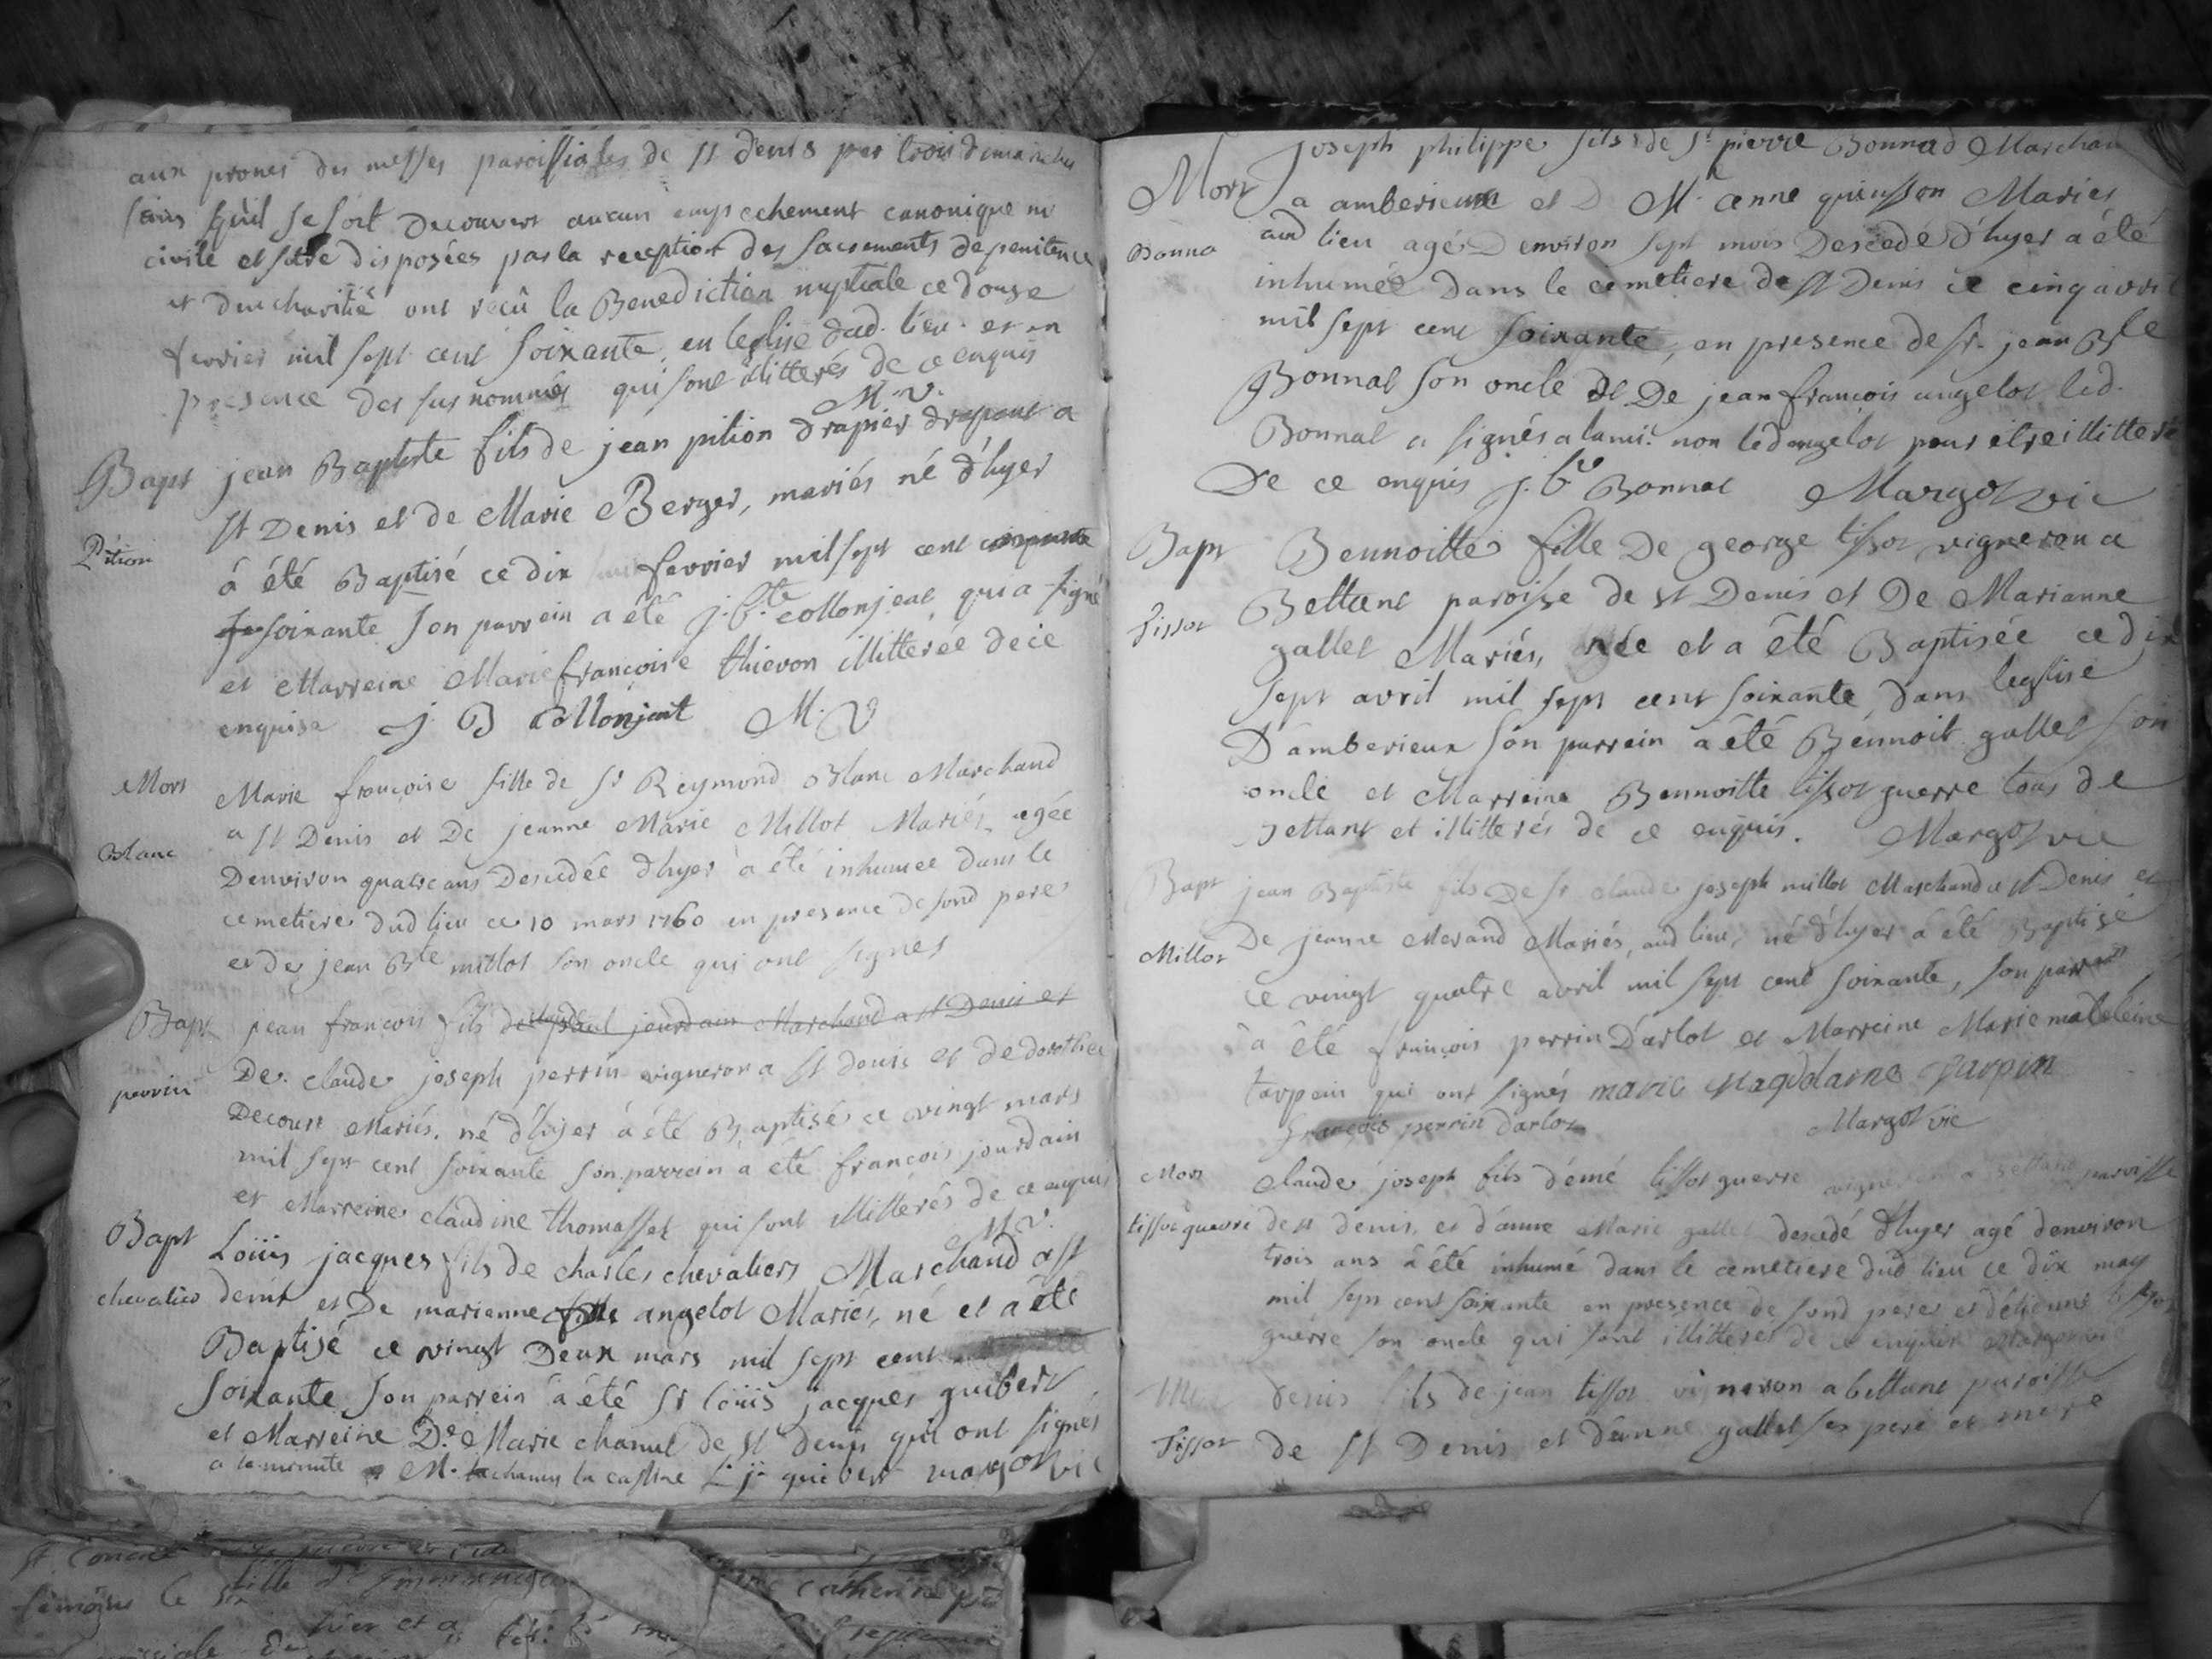 aux prones des messes paroissiales de st denis par trois dimanches
sans quil se soit decouvert aucun empechement canonique ni
civile et sétre disposées par la reception des sacrements de penitence
et deucharitié ont reçû la Benediction nuptiale ce douze
fevrier mil sept cent soixante en leglise dud. lieu. et en
presence des sus nommés qui sont illitterés de ce enquis
M. V.
Bapt jean Baptiste fils de jean pition drapier drapant a
st Denis et de Marie Berger, mariés né d'hyer
Pition
à été Baptisé ce dix fevrier mil sept cent
soixante son parrein a été j. b.te collonjeat qui a signé
et Marreine Marie francoise thievon illitterée de ce
enquise J B collonjeat M. V
Mort Marie françoise fille de sr Reymond Blanc Marchand
a st Denis et De jeanne Marie Millot Mariés, agée
Blanc
Denviron quatre ans Descedée d'hyer a été inhumee dans le
cemetiere dud lieu ce 10 mars 1760 en presence de sond pere
et de jean Bte millot son oncle qui ont signes
Bapt jean francois fils de jourdain Marchand a st Denis et
De claude joseph perrin vigneron a st denis et de dorothee
perrin
Decourt Mariés, né d'hyer à été Baptisé ce vingt mars
mil sept cent soixante son parrein a été francois jourdain
et Marreine claudine thomasset qui sont illitterés de ce enquis
M V.
Bapt Loüis jacques fils de charles chevaliers Marchand a st
chevalier denis et De marienne angelot Mariés, né et a été
Baptisé ce vingt Deux mars mil sept cent
soixante son parrein à été sr loüis jacques guibert
et Marreine De Marie chanul de st denis qui ont signés
a la minute M. L. j. guibert margot vic
Joseph philippe fils de sr pierre Bonnad Marchand
Mort a amberieux et D M. anne Maries
aud lieu agés Denviron sept mois Descedé d'hyer a été
Bonna
inhumée Dans le cemetiere de st Denis ce cinq avril
mil sept cent soixante, en presence de sr. jean Bte
Bonnat son oncle et De jean françois angelot led.
Bonnat a signés a la mi. non led angelot pour être illitteré
De ce enquis j. bte Bonnat Margot vic
Bapt Bennoitte fille De george tissot vigneron a
Bettant paroisse de st Denis et De Marianne
Tissot
gallet Mariés, née et a été Baptisée ce dix
sept avril mil sept cent soixante dans leglise
D'amberieux son parrein a été Bennoit gallet son
oncle et Marreine Bennoitte tissot guerre tous de
Bettant et illitterés de ce enquis. Margot vic
Bapt jean Baptiste fils De sr claude joseph millot Marchand a st Denis et
De jeanne Merand Mariés, aud lieu, né d'hyer a été Baptisé
Millot
ce vingt quatre avril mil sept cent soixante, son parrein
à été françois perrin Darlot et Marreine Marie madeleine
tarpain qui ont signés marie Magdelaine Tarpin
françois perrin darlot Margot vic
Mort claude joseph fils d'émé tissot guerre vigneron a bettant paroisse
tissot guerre de st denis, et d'anne Marie gallet descedé d'hyer agé denviron
trois ans à été inhumé dans le cemetiere dud lieu ce dix may
mil sept cent soixante en presence de sond pere et d'étienne tissot
guerre son oncle qui sont illitteres de ce enquis Margot vic
denis fils de jean tissot vigneron a bettant paroisse
Tissot de st Denis et d'anne gallet ses pere et mere